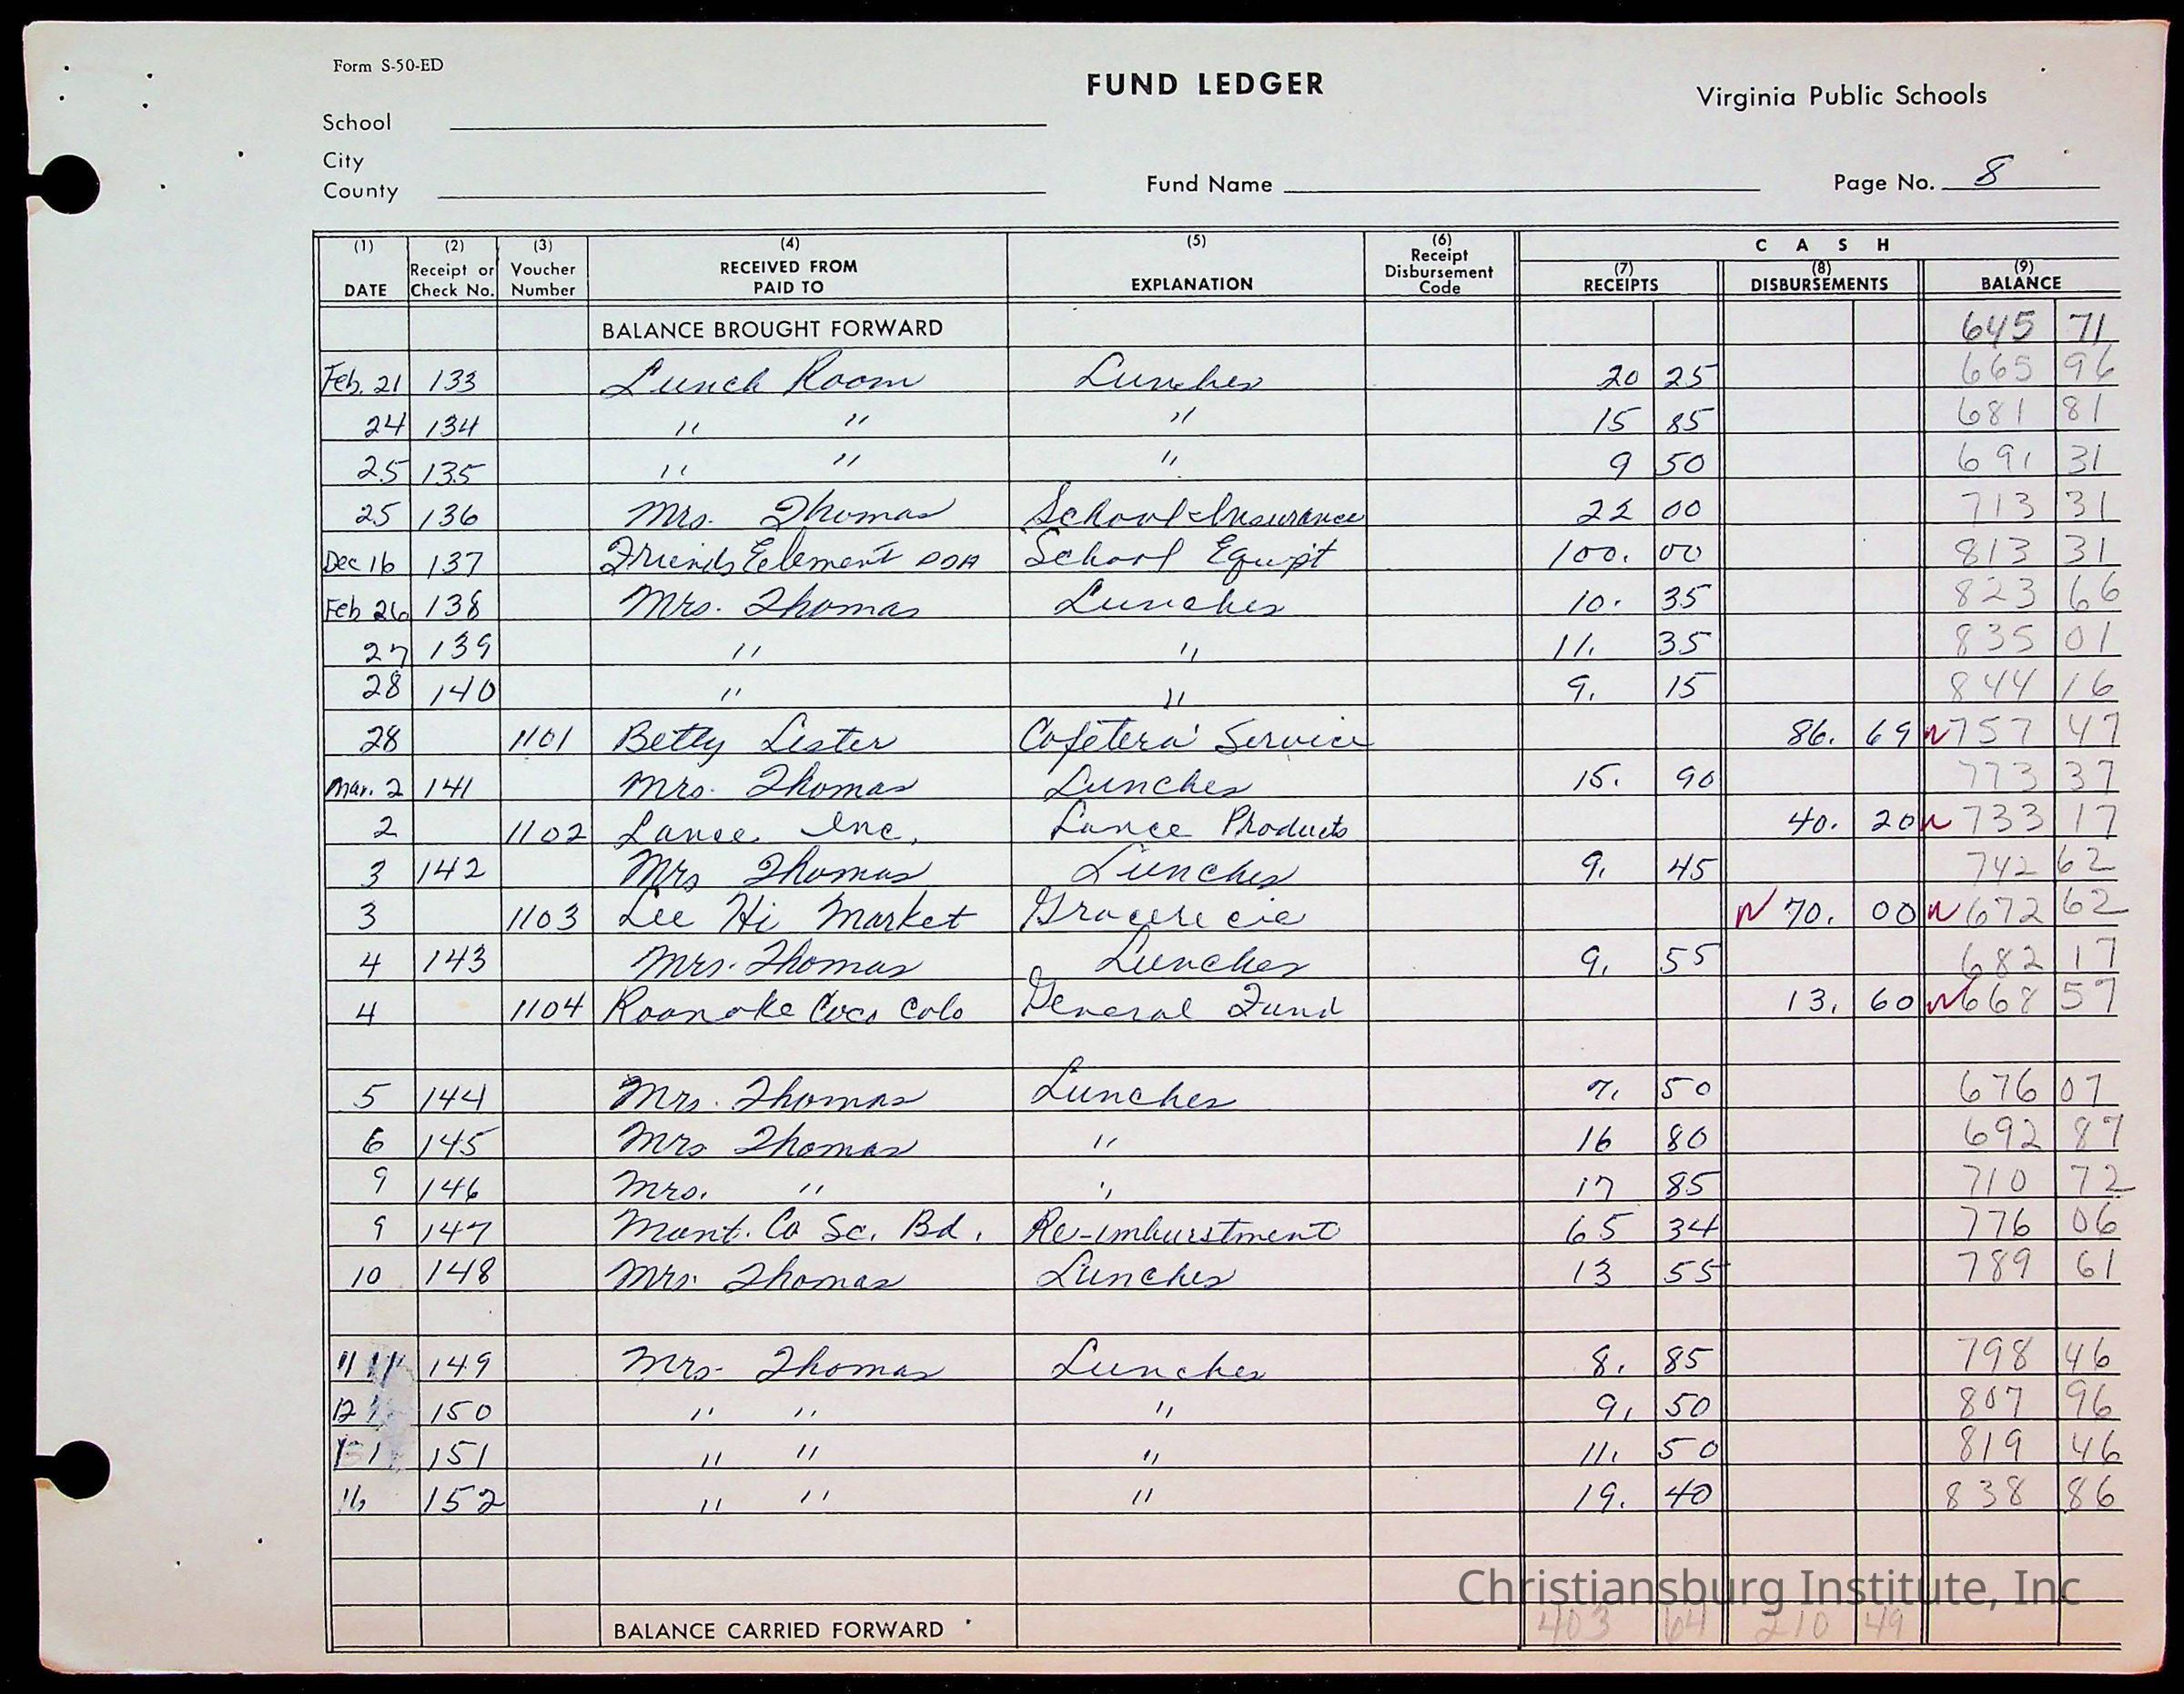 Form S-50-ED
FUND LEDGER
Virginia Public Schools
School
City
County
Fund Name
Page No. 8
(1) (2) (3) (4) (5) (6) C A S H
DATE Receipt or Check No. Voucher Number RECEIVED FROM PAID TO EXPLANATION Receipt Disbursement Code (7) RECEIPTS (8) DISBURSEMENTS (9) BALANCE
BALANCE BROUGHT FORWARD 645 71
Feb. 21 133 Lunch Room Lunches 20 25 665 96
24 134 " " " 15 85 681 81
25 135 " " " 9 50 691 31
25 136 Mrs. Thomas School Insurance 22 00 713 31
Dec 16 137 Friends School Equipt 100. 00 813 31
Feb 26 138 Mrs. Thomas Lunches 10. 35 823 66
27 139 " " 11. 35 835 01
28 140 " " 9. 15 844 16
28 1101 Betty Lester Cafetera Service 86. 69 757 47
Mar. 2 141 Mrs. Thomas Lunches 15. 90 773 37
2 1102 Lance Inc. Lance Products 40. 20 733 17
3 142 Mrs Thomas Lunches 9. 45 742 62
3 1103 Lee Hi Market 70. 00 672 62
4 143 Mrs. Thomas Lunches 9. 55 682 17
4 1104 Roanoke Coca Cola General Fund 13. 60 668 57
5 144 Mrs. Thomas Lunches 7. 50 676 07
6 145 Mrs Thomas " 16 80 692 87
9 146 Mrs. " " 17 85 710 72
9 147 Mont. Co Sc. Bd. Re-imburstment 65 34 776 06
10 148 Mrs. Thomas Lunches 13 55 789 61
11 149 Mrs. Thomas Lunches 8. 85 798 46
12 150 " " " 9. 50 807 96
151 " " " 11. 50 819 46
16 152 " " " 19. 40 838 86
Christiansburg Institute, Inc
BALANCE CARRIED FORWARD 403 64 210 49